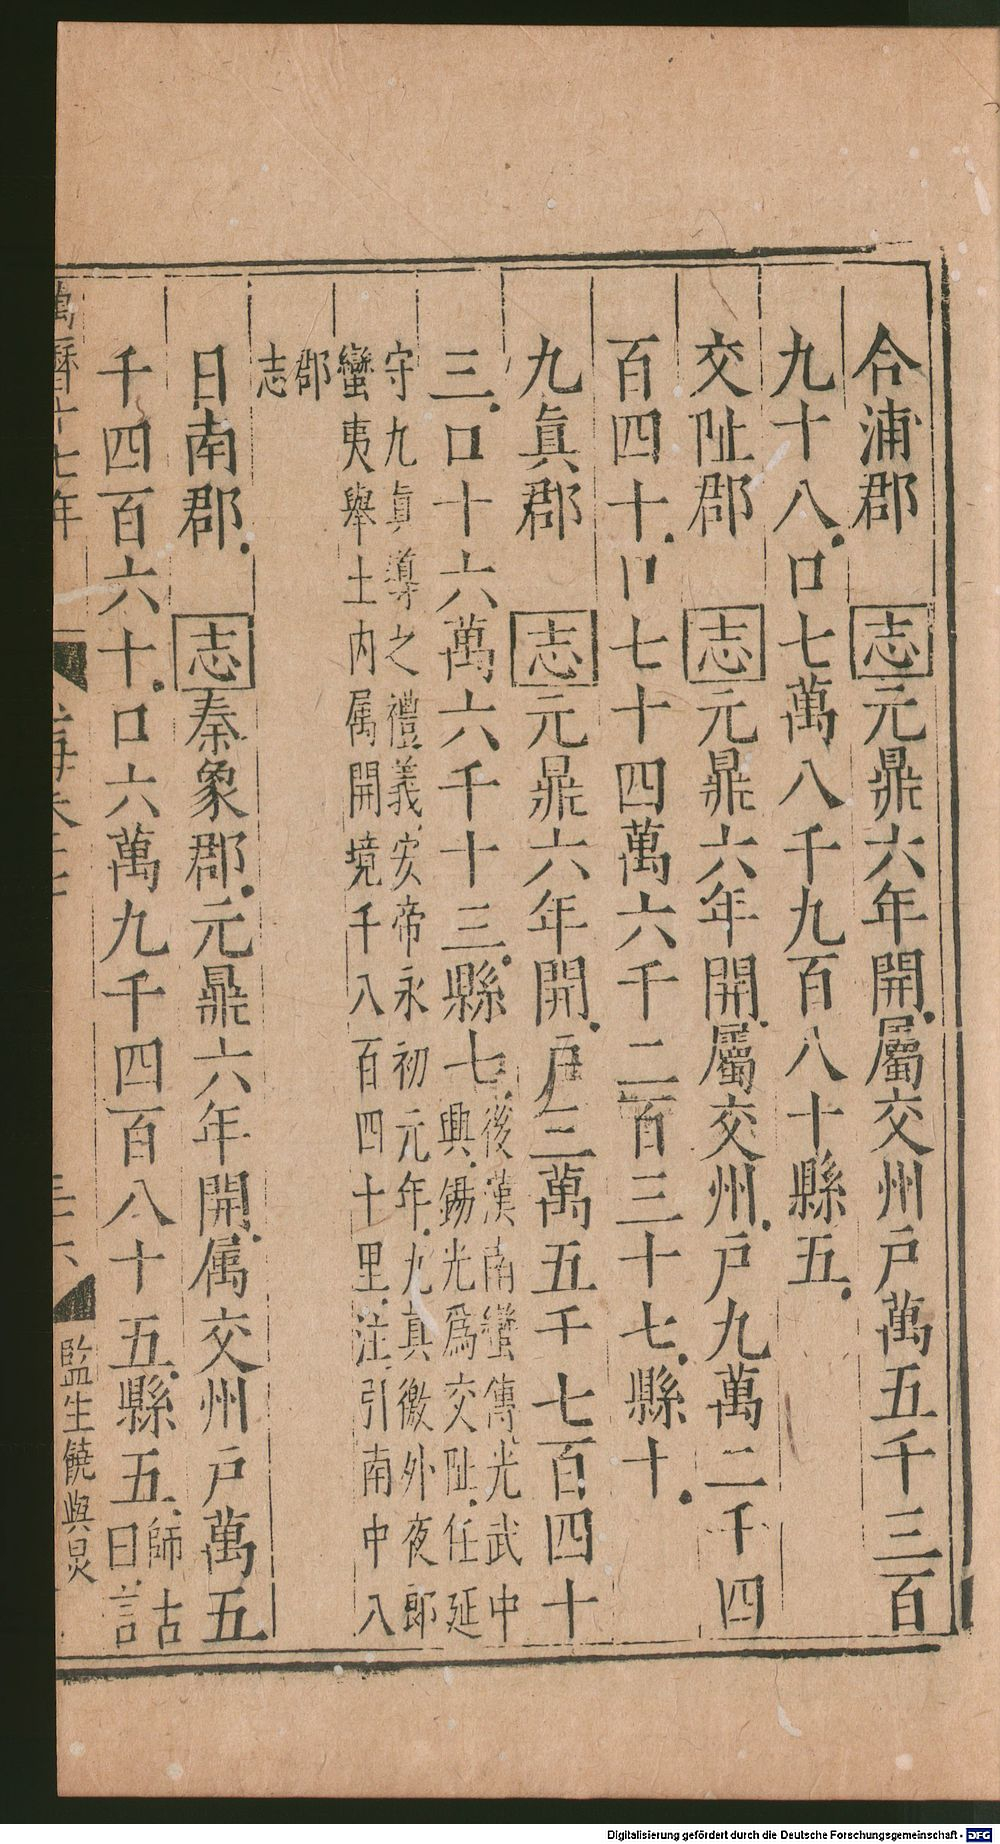 合浦郡 志元鼎六年開屬交州戶萬五千三百
九十八口七萬八千九百八十縣五
交阯郡 志元鼎六年開屬交州戶九萬二千四
百四十口七十四萬六千二百三十七縣十
九眞郡 志元鼎六年開戶三萬五千七百四十
三口十六萬六千十三縣七後漢南蠻傳光武中
興錫光爲交阯任延
守九眞導之禮義安帝永初元年九眞徼外夜郎
蠻夷舉土内属開境千八百四十里注引南中八
郡
志
日南郡 志秦象郡元鼎六年開属交州戶萬五
千四百六十口六萬九千四百八十五縣五師古
曰言
萬曆十七年
監生饒與炅
Digitalisierung gefördert durch die Deutsche Forschungsgemeinschaft - DFG